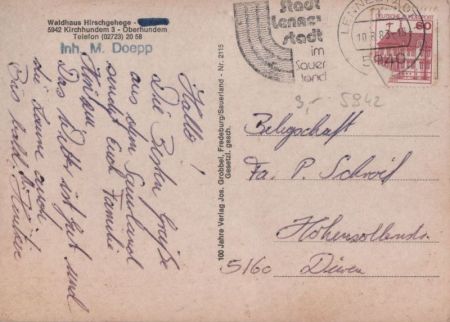 Waldhaus Hirschgehege -
5942 Kirchhundem 3 - Oberhundem
Telefon (02723) 20 58
Inh. M. Doepp
Stadt
Lenne-
stadt
im
Sauer
land
LENNESTADT
10.8.83
5940
DEUTSCHE BUNDESPOST
60
3,- 5942
Hallo!
Die besten Grüße
aus dem Sauerland
sendet Euch Familie
Das Wetter ist gut und
die Laune auch.
Bis bald
100 Jahre Verlag Jos. Grobbel, Fredeburg/Sauerland - Nr. 2115
Gesetzl. gesch.
Belegschaft
Fa. P. Schreif
Hohenzollernstr.
5160 Düren